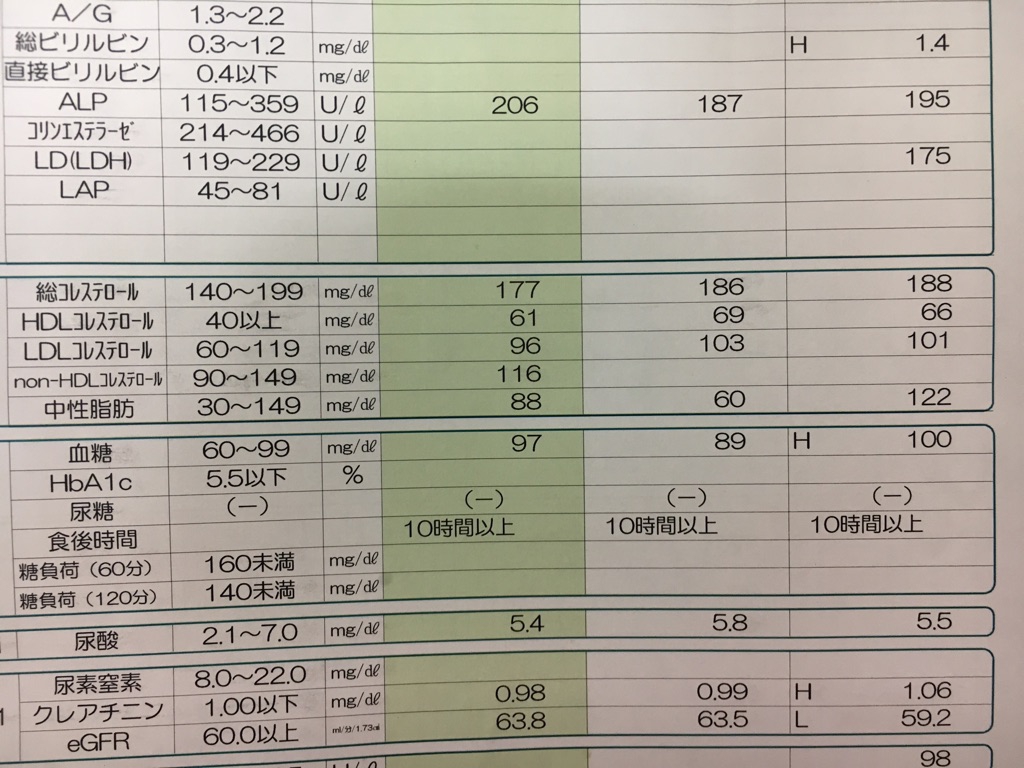 A/G 1.3～2.2
総ビリルビン 0.3～1.2 mg/dℓ H 1.4
直接ビリルビン 0.4以下 mg/dℓ
ALP 115～359 U/ℓ 206 187 195
コリンエステラーゼ 214～466 U/ℓ
LD(LDH) 119～229 U/ℓ 175
LAP 45～81 U/ℓ
総コレステロール 140～199 mg/dℓ 177 186 188
HDLコレステロール 40以上 mg/dℓ 61 69 66
LDLコレステロール 60～119 mg/dℓ 96 103 101
non-HDLコレステロール 90～149 mg/dℓ 116
中性脂肪 30～149 mg/dℓ 88 60 122
血糖 60～99 mg/dℓ 97 89 H 100
HbA1c 5.5以下 %
尿糖 (－) (－) (－) (－)
食後時間 10時間以上 10時間以上 10時間以上
糖負荷（60分） 160未満 mg/dℓ
糖負荷（120分） 140未満 mg/dℓ
尿酸 2.1～7.0 mg/dℓ 5.4 5.8 5.5
尿素窒素 8.0～22.0 mg/dℓ
クレアチニン 1.00以下 mg/dℓ 0.98 0.99 H 1.06
eGFR 60.0以上 ml/分/1.73㎡ 63.8 63.5 L 59.2
98